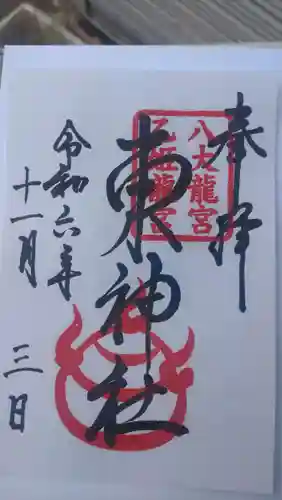 奉拝
八大龍宮
乙姫龍宮
神社
令和六年
十一月
三日